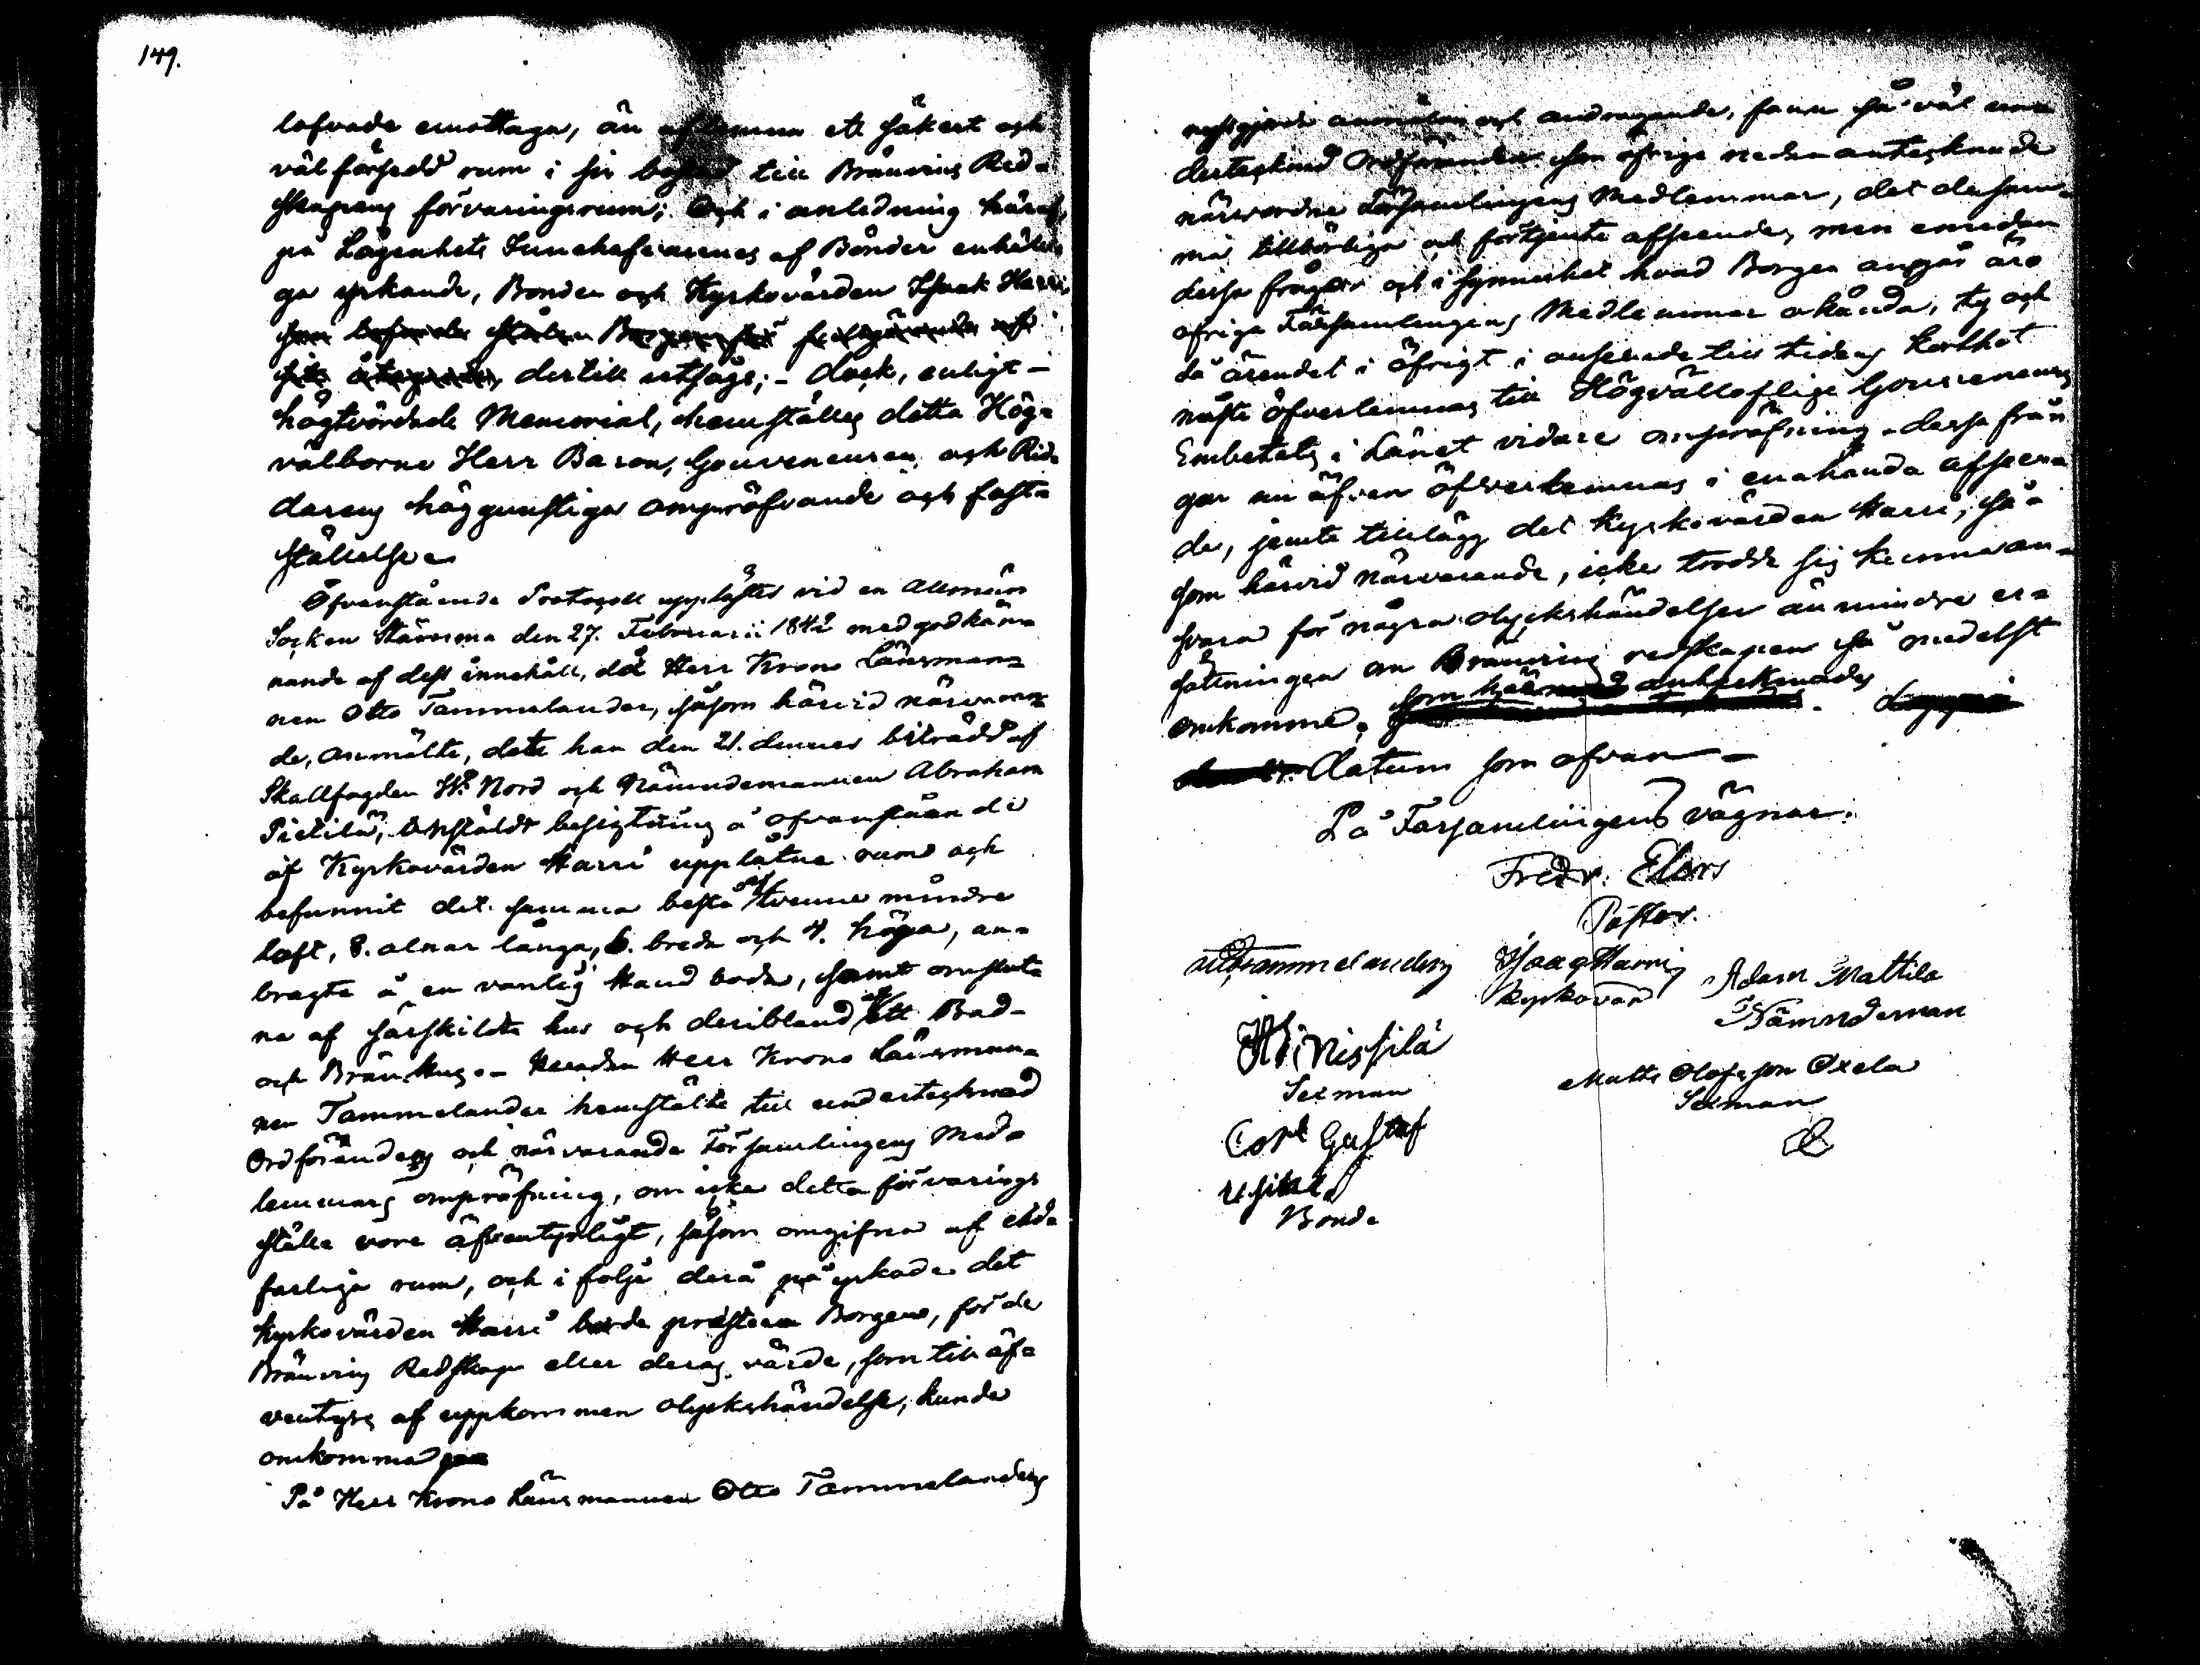 149.
lofvade emottaga, än aflemna ett säkert och
väl försedd rum i sin till Bränvins Red-
skapens förvaringsrum; Och i anledning häraf,
på Lägenhets Innehafvarenes af Bönder enhälli-
ga yrkande, Bonden och Kyrkovärden Isaak Harri
som
sitt åtagande, dertill utsågs;- dock, enligt -
högtvördade Memorial, hemställes detta Hög-
välborne Herr Baron, Gouverneuren och Rid-
darens höggunstiga ompröfvande och fast-
ställelse.
Ofvanstående Protocoll upplästes vid en Allmän
Socken Stämma den 27. Februarii 1842 med godkän-
nande af dess innehåll, då Herr Krono Länsman-
nen Otto Tammelander, såsom härvid närvaran-
de, anmälte, det han den 21. dennes biträdd af
Skallfogden Nord och Nämndemannen Abraham
Pietilä, anstäldt besigtning å ofvanstående
af Kyrkovärden Harri upplåtne rum och
befunnit det samma bestå af tvenne mindre
loft, 8. alnar långa, 6. breda och 4. höga, an-
bragte å en vanlig Hand boda, samt omslut-
na af särskildte hus och deribland af ett Bad-
och Brän Hus.- Hvarden Herr Krono Länsman-
nen Tammelander hemstälte till undertecknad
Ordförandes och närvarande Församlingens Med-
lemmars ompröfning, om icke detta förvarings
ställe vore äfventyrligt, såsom omgifna af eld-
farliga rum, och i följe derå påyrkade det
Kyrkovärden Harri borde præstera Borgen, för de
Bränvins Redskap eller deras värde, som till äf-
ventyrs af uppkommen olyckshändelse, kunde
omkomma
På Herr Krono Länsmannen Otto Tammelanders
nyssgjorde anmälan och andragande, fann så väl un-
dertecknad Ordförande som öfrige nedanantecknade
närvarande Församlingens Medlemmar, det densam-
ma tillbörliga och förtjente afseende, men emedan
dessa frågor och i synnerhet hvad Borgen angår äro
öfriga Församlingens Medlemmar okända, ty och
då ärendet i öfrigt i anseende till tidens korthet
måste öfverlemnas till Högvällofliga Gouverneurs
Embetets i Länet vidare ompröfning, dessa frå-
gor nu äfven öfverlemnas i enahanda afseen-
de, jemte tillägg det Kyrkovärden Harri, så-
som härvid närvarande, icke trodde sig kunna an-
svara för några olyckshändelser än mindre er-
sättningen om Bränvins redskapen så medelst
omkomme, som härmed antecknades
Datum som ofvan -
På Församlingens vägnar.
Fredr. Elers
Pastor.
Otto Tammelander Isaac Harri Adam Mattila
Kyrkovärd Nämndeman
Sexman Matts Olofsson Oxela
Sexman
Carl Gustaf
Bonde